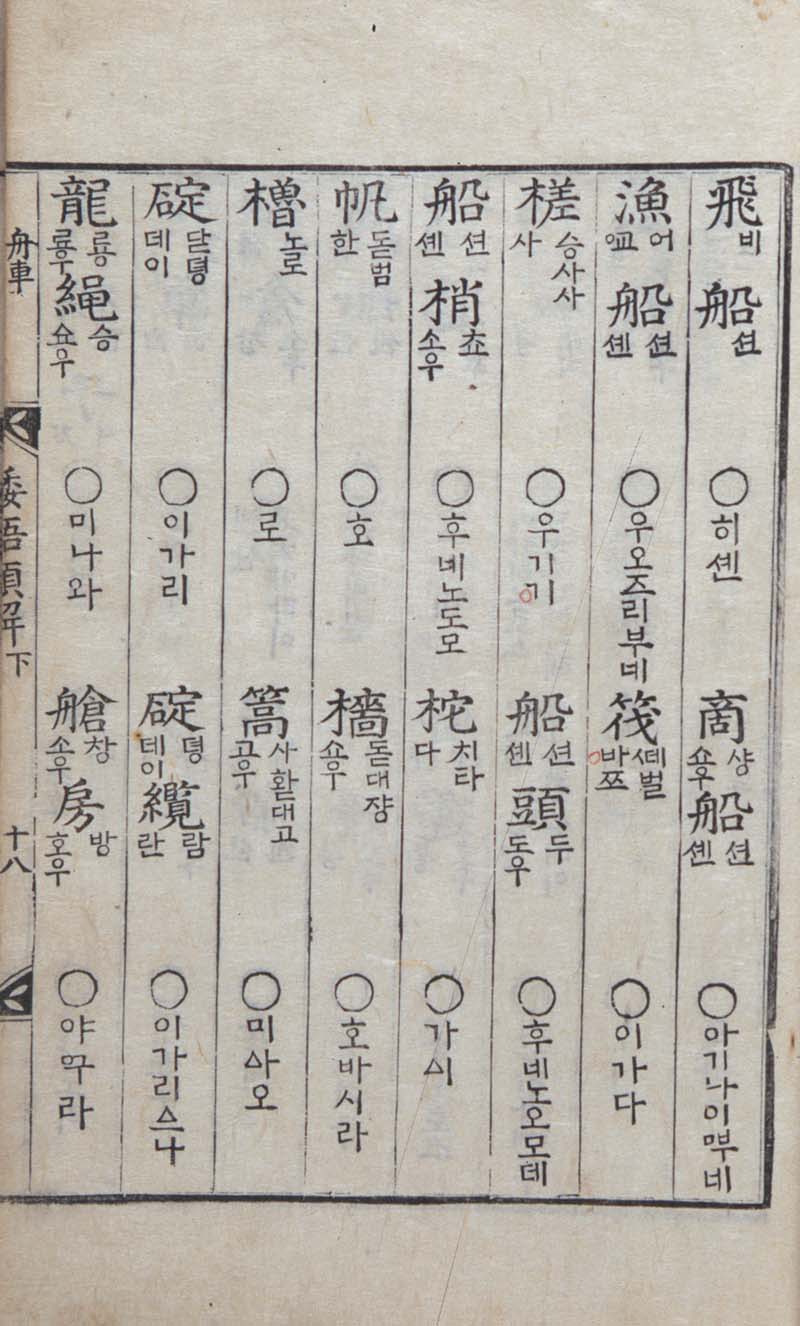 飛비 船션 ○히셴 商샹쇼우 船션셴 ○아기나이ᄜᅮ네
漁어ᅁᅭ 船션셴 ○우오즈리부네 筏ᄯᅦ벌바쯔 ○이가다
槎승사사사 ○우기기 船션셴 頭두도우 ○후네노오모데
船션셴 梢쵸소우 ○후네노도모 柁치타다 ○가ᅀᅵ
帆돋범한 ○호 檣돋대쟝쇼우 ○호바시라
櫓노로 ○로 篙사홛대고고우 ○미ᅀᅡ오
碇닫뎡데이 ○이가리 碇뎡데이 纜람란 ○이가리ᅀᅳ나
龍룡료우 繩승쇼우 ○미나와 艙창소우 房방호우 ○야ᅁᅮ라
舟車 倭語類解下 十八